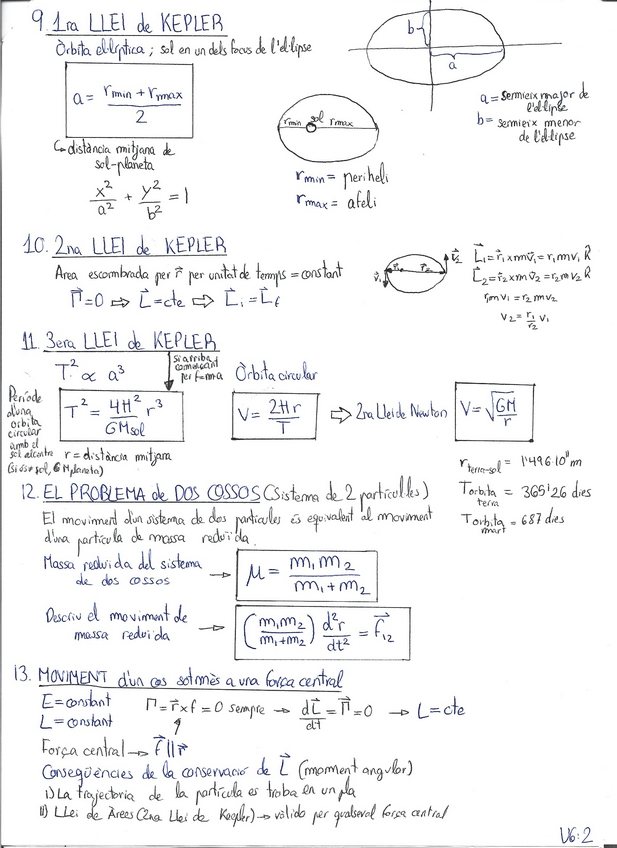 9. 1ra LLEI de KEPLER
Òrbita el·líptica; sol en un dels focus de l'el·lipse
a = rmin + rmax / 2
↳ distància mitjana de
sol-planeta
x²/a² + y²/b² = 1
b
a
a = semieix major de
l'el·lipse
b = semieix menor
de l'el·lipse
rmin sol rmax
rmin = periheli
rmax = afeli
10. 2na LLEI de KEPLER
Area escombrada per r⃗ per unitat de temps = constant
M⃗=0 ⇒ L⃗=cte ⇒ L⃗i = L⃗f
v⃗1 r⃗1 r⃗2 v⃗2
L⃗1 = r⃗1 x mv⃗1 = r1 m v1 k̂
L⃗2 = r⃗2 x mv⃗2 = r2 m v2 k̂
r1 m v1 = r2 m v2
v2 = r1/r2 v1
11. 3era LLEI de KEPLER
T² ∝ a³
si arriba
començant
per f=m·a
Període
d'una
orbita
circular
amb el
sol al centre
(si és ≠ sol, GMplaneta)
T² = 4π²/GMsol r³
r = distància mitjana
Òrbita circular
V = 2πr/T
⇒ 2na Llei de Newton
V = √GM/r
rterra-sol = 1'496·10¹¹ m
Torbita terra = 365'26 dies
Torbita mart = 687 dies
12. EL PROBLEMA de DOS COSSOS (Sistema de 2 partícul·les)
El moviment d'un sistema de dos partícules és equivalent al moviment
d'una partícula de massa reduïda.
Massa reduïda del sistema
de dos cossos
→ μ = m1 m2 / m1 + m2
Descriu el moviment de
massa reduïda
→ (m1m2 / m1+m2) d²r/dt² = F⃗12
13. MOVIMENT d'un cos sotmès a una força central
E = constant
L = constant
M = r⃗ x f = 0 sempre → dL⃗/dt = M⃗ = 0 → L = cte
Força central → f⃗ || r⃗
Conseqüències de la conservació de L⃗ (moment angular)
i) La trajectoria de la partícula es troba en un pla
ii) Llei de Àrees (2na Llei de Kepler) → vàlido per qualsevol força central
V6:2